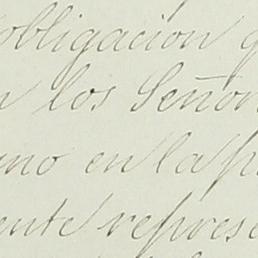 obligacion q
n los Señor
uno en la p
ente represe